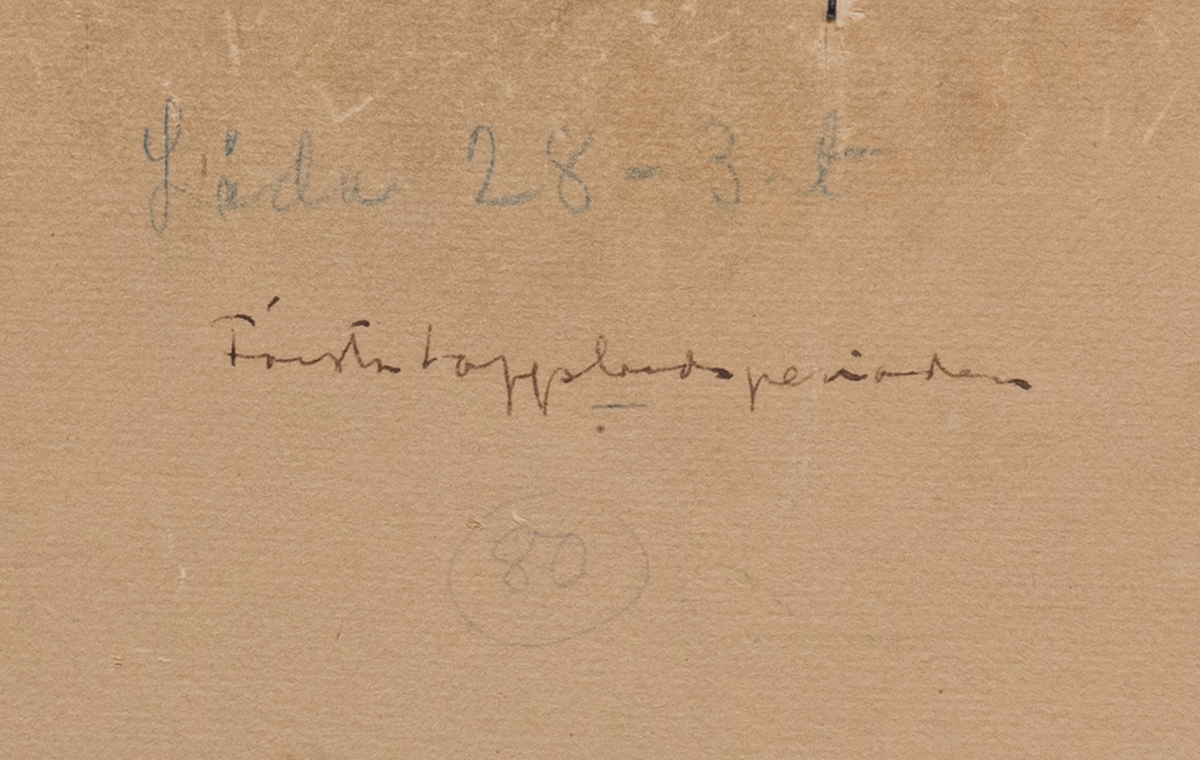 Låda 28 - 3 t
Första Lapplandsperioden
80